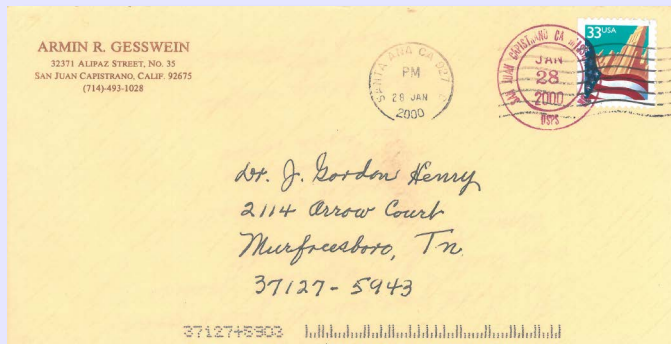 ARMIN R. GESSWEIN
32371 ALIPAZ STREET, NO. 35
SAN JUAN CAPISTRANO, CALIF. 92675
(714)-493-1028
SANTA ANA CA 927
PM
28 JAN
2000
SAN JUAN CAPISTRANO CA
JAN
28
2000
USPS
33USA
Dr. J. Gordon Henry
2114 Arrow Court
Murfreesboro, Tn.
37127-5943
37127+5903